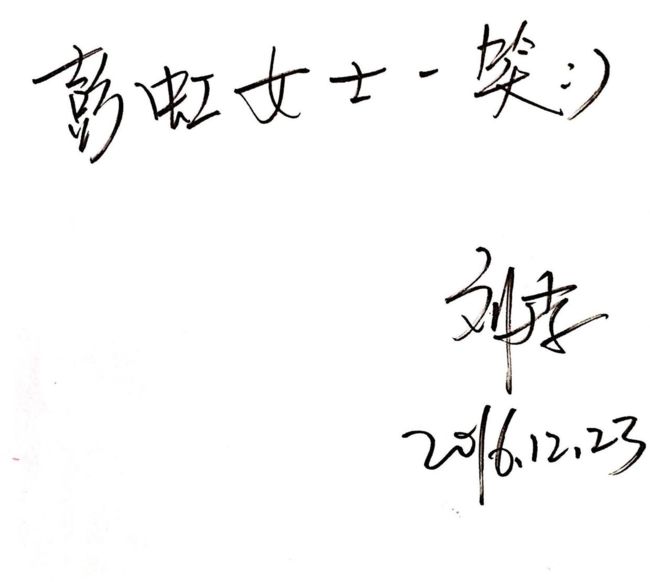 彭虹女士一笑:)
刘李
2016.12.23